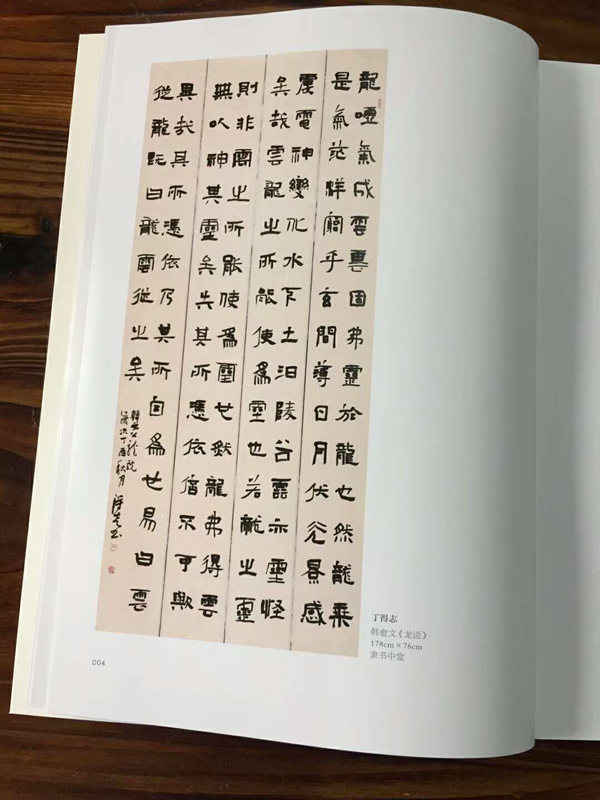 龍噓氣成雲雲固弗靈於龍也然龍乘
是氣茫洋窮乎玄間薄日月伏光景感
震電神變化水下土汩陵谷雲亦靈怪
矣哉雲龍之所能使為靈也若龍之靈
則非雲之所能使為靈也然龍弗得雲
無以神其靈矣失其所憑依信不可歟
異哉其所憑依乃其所自為也易曰雲
從龍既曰龍雲從之矣
韓愈文龍說
歲次丁酉秋月得志書
丁得志
韩愈文《龙说》
178cm×76cm
隶书中堂
004